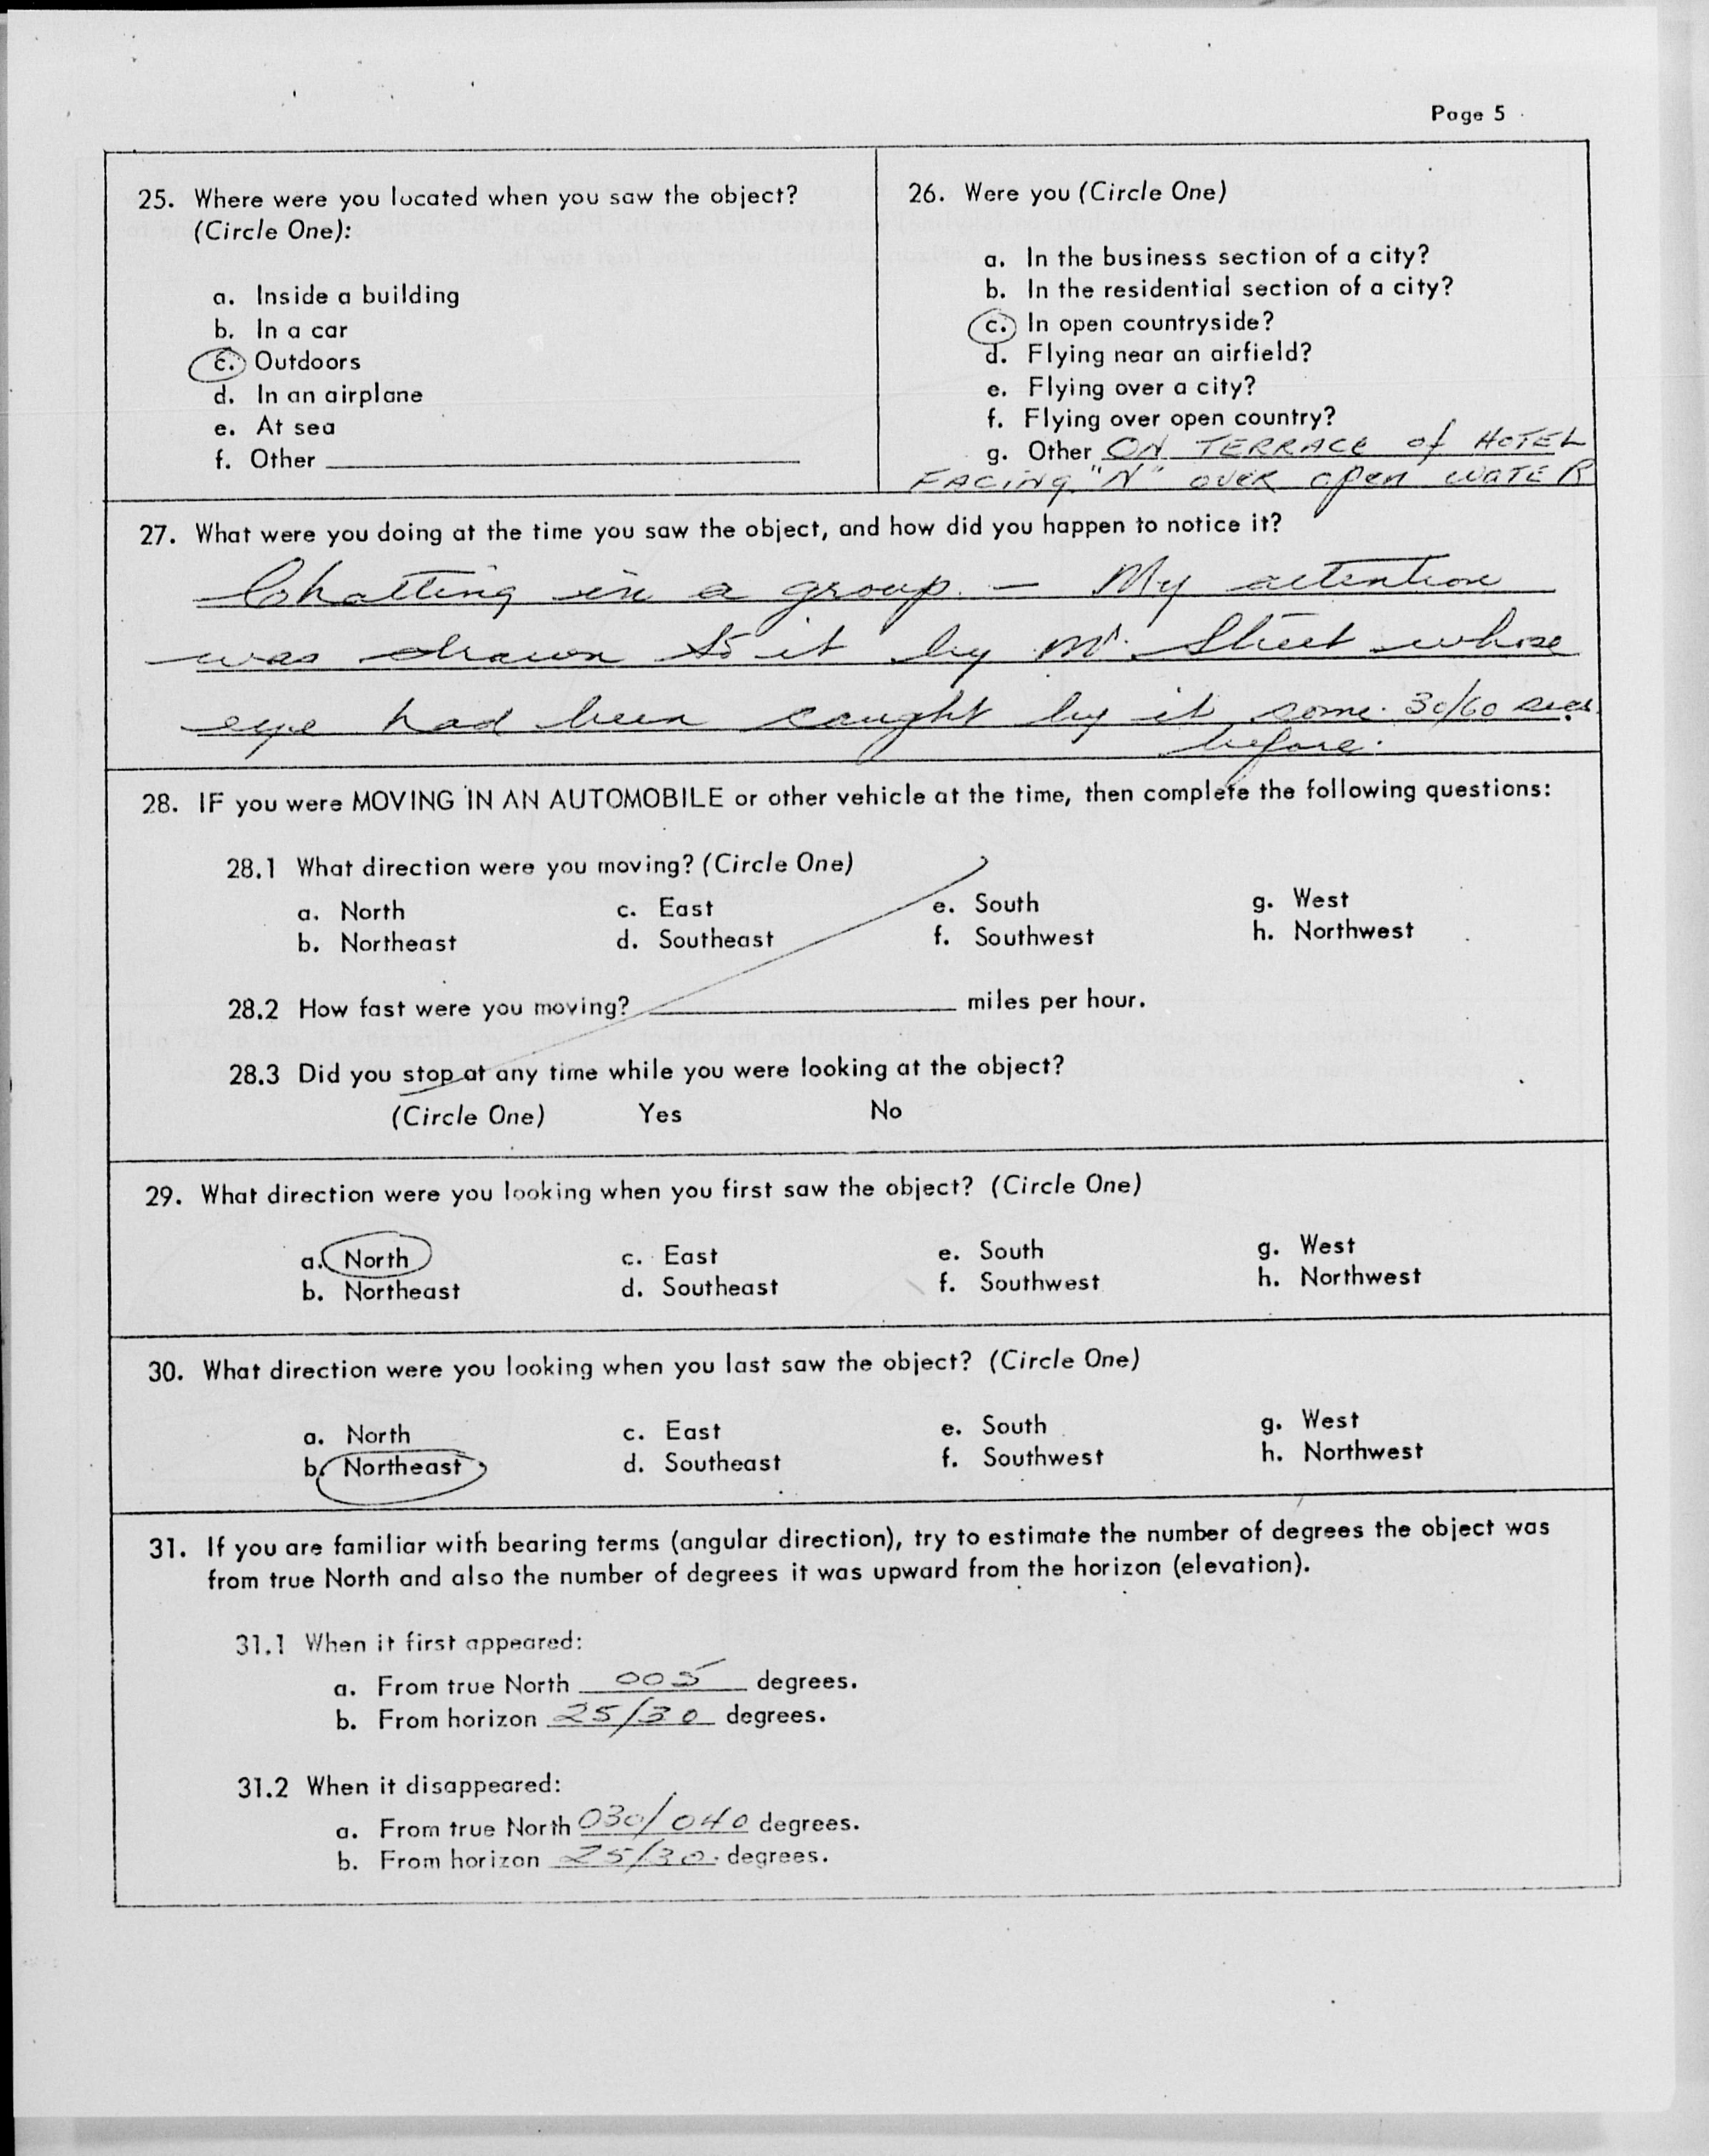 Page 5
25. Where were you located when you saw the object?
(Circle One):
a. Inside a building
b. In a car
c. Outdoors
d. In an airplane
e. At sea
f. Other
26. Were you (Circle One)
a. In the business section of a city?
b. In the residential section of a city?
c. In open countryside?
d. Flying near an airfield?
e. Flying over a city?
f. Flying over open country?
g. Other ON TERRACE of HOTEL
FACING "N" OVER open WATER
27. What were you doing at the time you saw the object, and how did you happen to notice it?
Chatting in a group. – My attention
was drawn to it by Mr. Street whose
eye had been caught by it some 30/60 secs.
before.
28. IF you were MOVING IN AN AUTOMOBILE or other vehicle at the time, then complete the following questions:
28.1 What direction were you moving? (Circle One)
a. North c. East e. South g. West
b. Northeast d. Southeast f. Southwest h. Northwest
28.2 How fast were you moving? miles per hour.
28.3 Did you stop at any time while you were looking at the object?
(Circle One) Yes No
29. What direction were you looking when you first saw the object? (Circle One)
a. North c. East e. South g. West
b. Northeast d. Southeast f. Southwest h. Northwest
30. What direction were you looking when you last saw the object? (Circle One)
a. North c. East e. South g. West
b. Northeast d. Southeast f. Southwest h. Northwest
31. If you are familiar with bearing terms (angular direction), try to estimate the number of degrees the object was
from true North and also the number of degrees it was upward from the horizon (elevation).
31.1 When it first appeared:
a. From true North 005 degrees.
b. From horizon 25/30 degrees.
31.2 When it disappeared:
a. From true North 030/040 degrees.
b. From horizon 25/30. degrees.